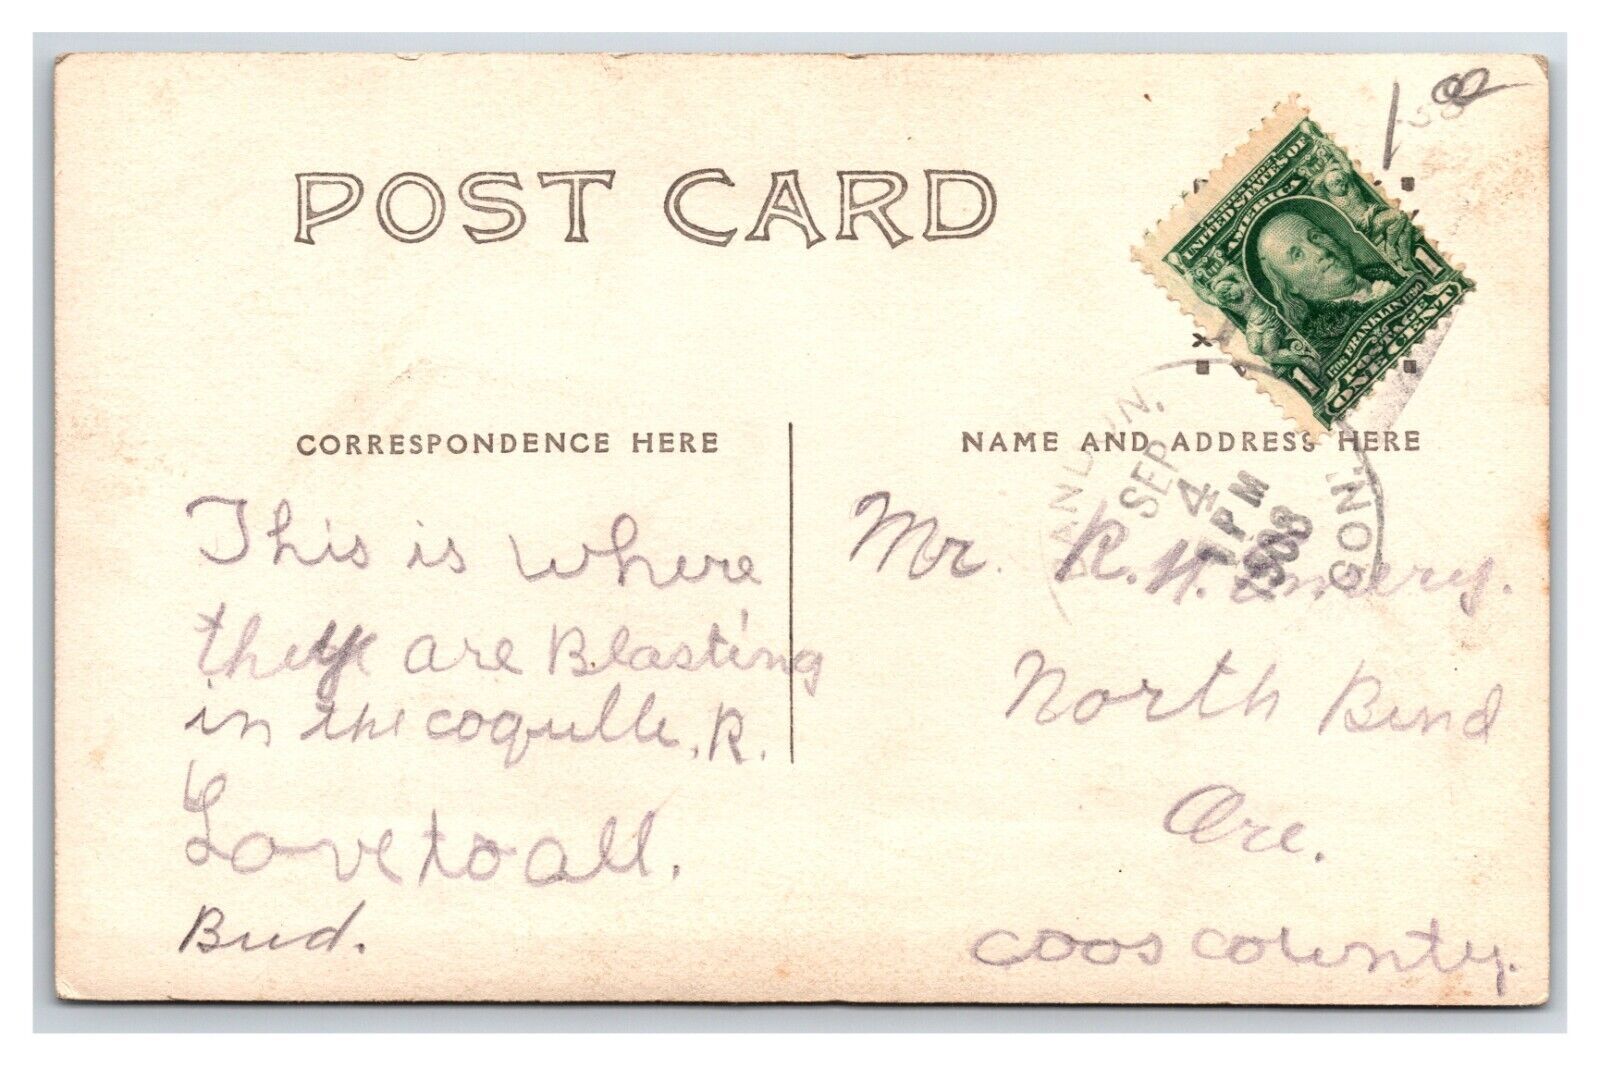 POST CARD
1 00
UNITED STATES OF
AMERICA
FRANKLIN
POSTAGE
1 ONE CENT 1
CORRESPONDENCE HERE
NAME AND ADDRESS HERE
SEP
4
1 PM
1908
GON.
This is where
they are Blasting
in the coquille, R.
Love to all.
Bud.
Mr. R. H. Emery.
North Bend
Ore.
Coos County.